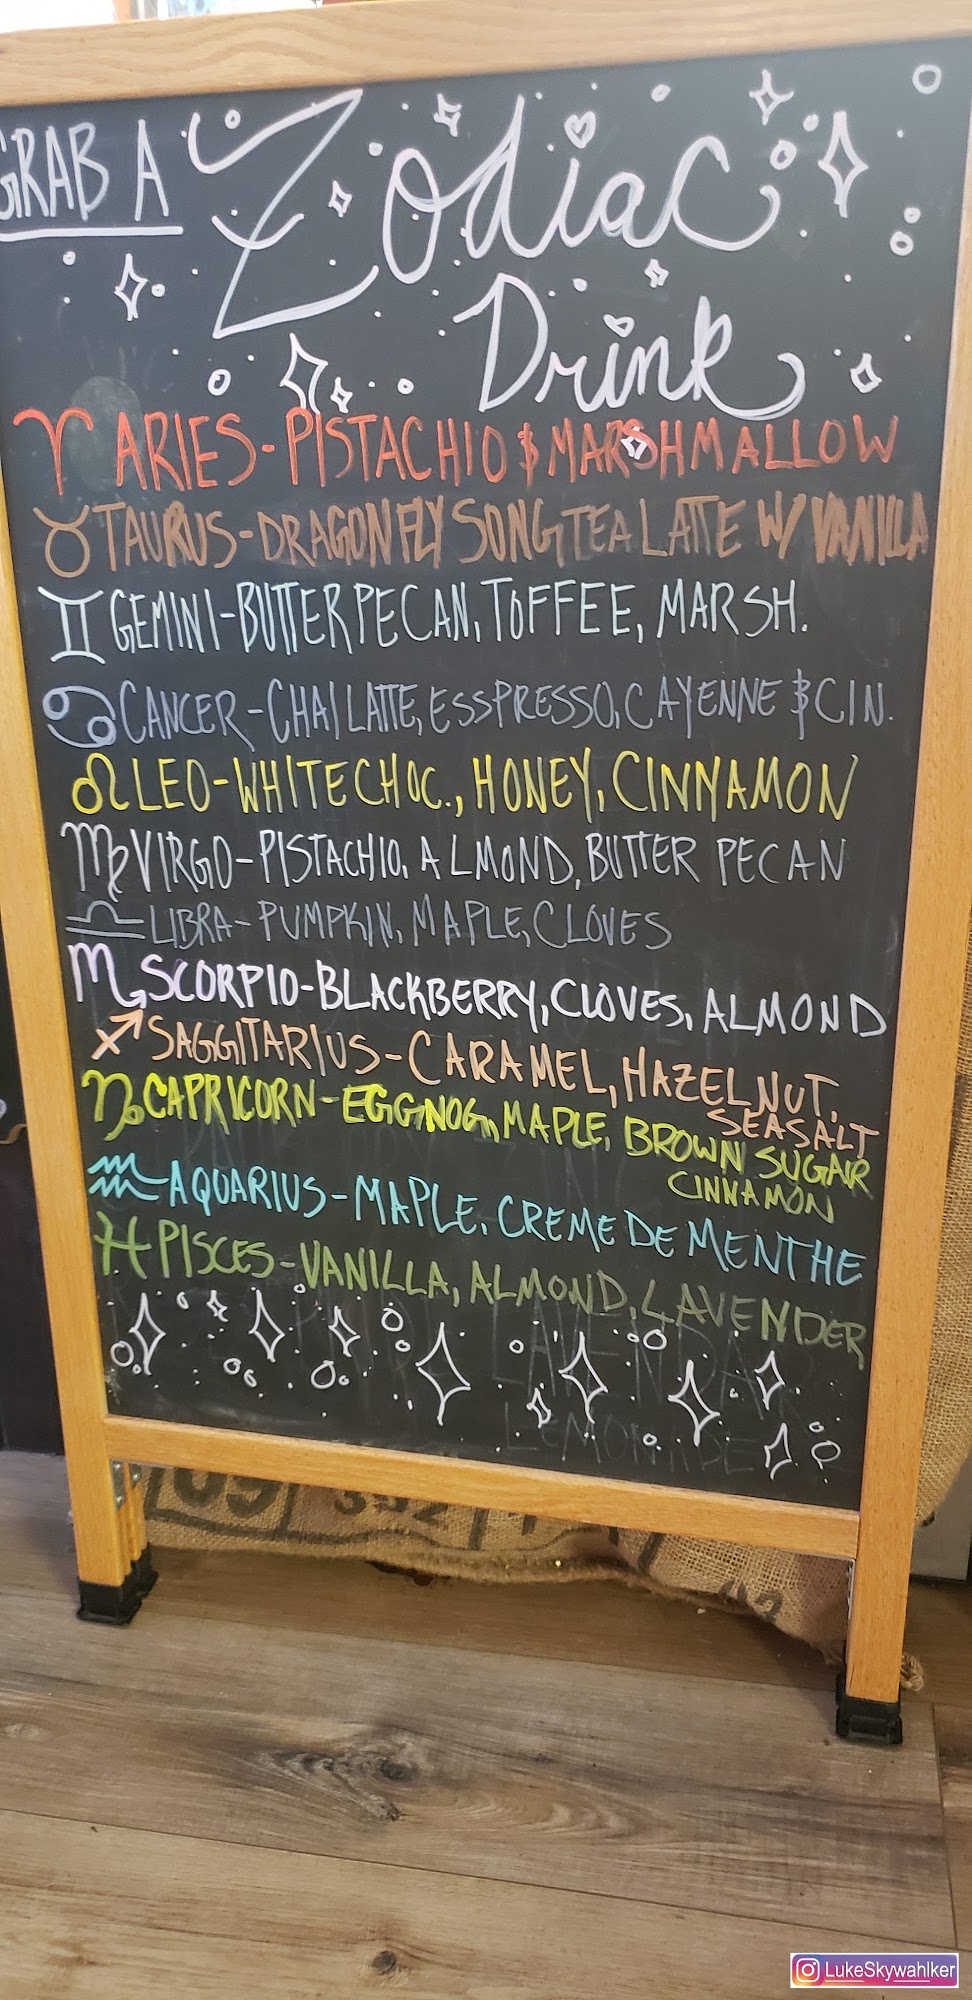 GRAB A Zodiac
Drink
♈ ARIES - PISTACHIO & MARSHMALLOW
♉ TAURUS - DRAGONFLY SONG TEA LATTE W/ VANILLA
♊ GEMINI - BUTTER PECAN, TOFFEE, MARSH.
♋ CANCER - CHAI LATTE, ESSPRESSO, CAYENNE & CIN.
♌ LEO - WHITE CHOC., HONEY, CINNAMON
♍ VIRGO - PISTACHIO, ALMOND, BUTTER PECAN
♎ LIBRA - PUMPKIN, MAPLE, CLOVES
♏ SCORPIO - BLACKBERRY, CLOVES, ALMOND
♐ SAGGITARIUS - CARAMEL, HAZELNUT,
SEASALT
♑ CAPRICORN - EGGNOG, MAPLE, BROWN SUGAR
CINNAMON
♒ AQUARIUS - MAPLE, CREME DE MENTHE
♓ PISCES - VANILLA, ALMOND, LAVENDER
LAVENDAR
LEMONADE
LukeSkywahlker